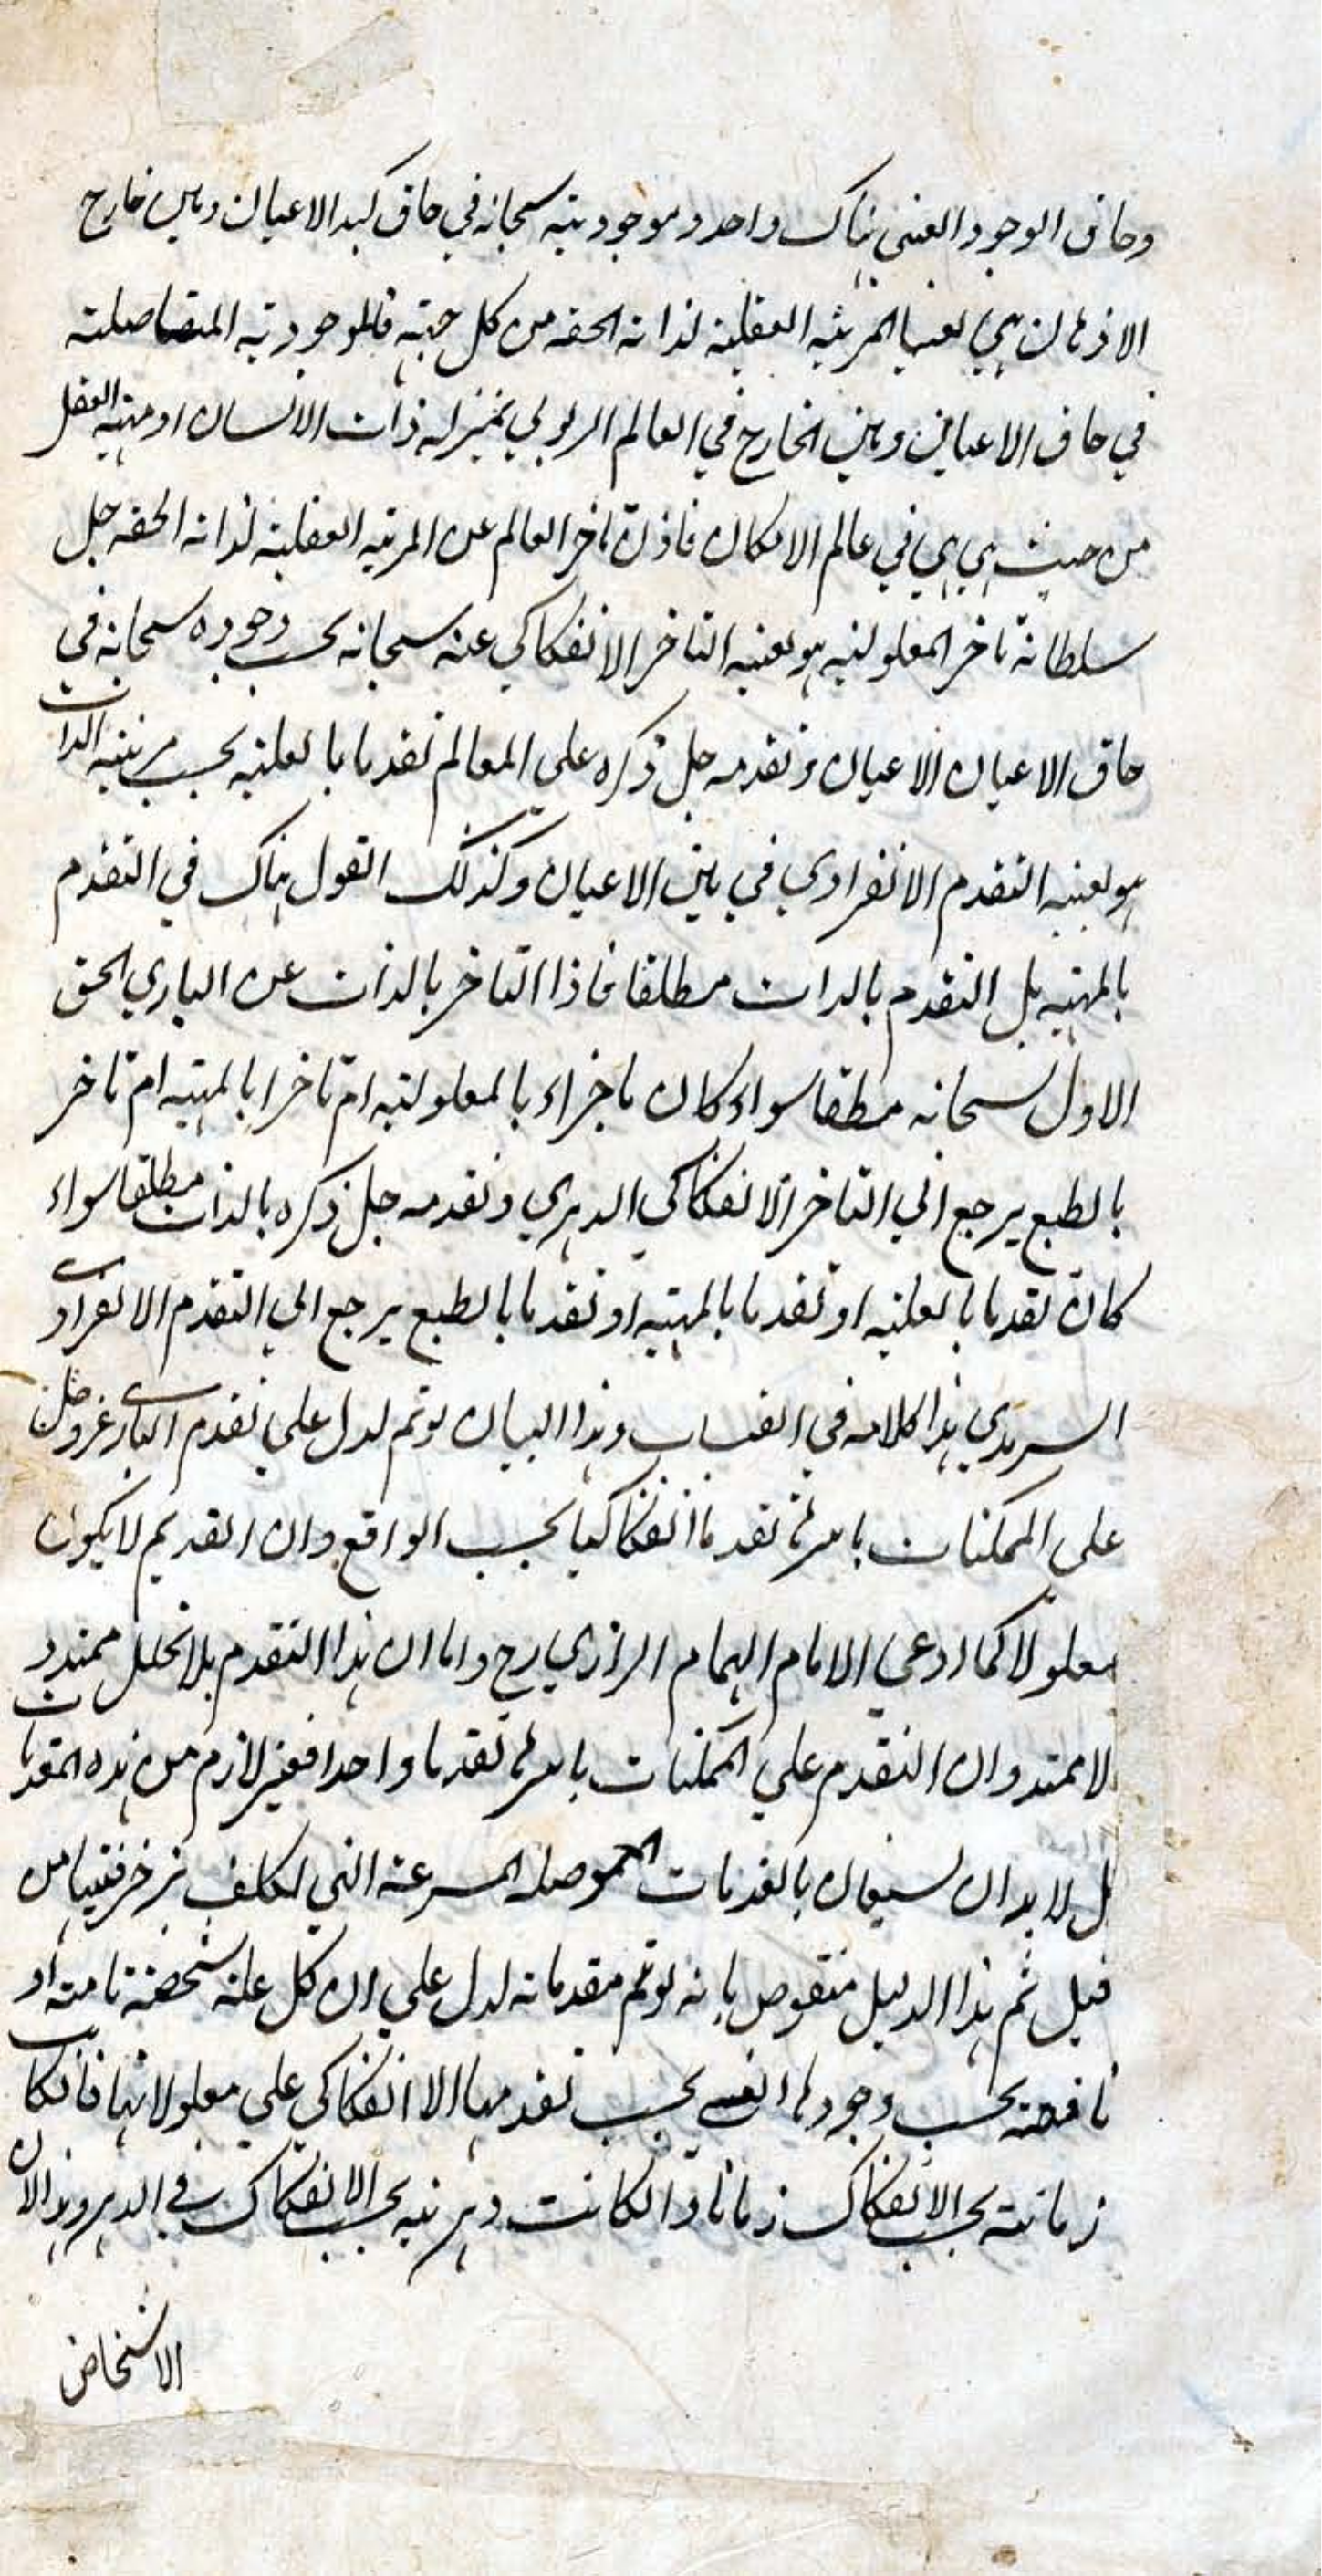 وحاق الوجود العيني هناك واحد وموجوديته سبحانه في حاق كبد الاعيان ومتن خارج
الاذهان هي بعينها المرتبه العقليه لذاته الحقه من كل جهته فالموجوديه المتصاصلته
في حاق الاعيان ومتن الخارج في العالم الربوبي بمنزله ذات الانسان او مهيه العقل
من حيث هي هي في عالم الامكان فاذن تاخر العالم عن المرتبه العقليه لذاته الحقه جل
سلطانه تاخر المعلوليه هو بعينه التاخر الانفكاكي عنه سبحانه بحسب وجوده سبحانه في
حاق الاعيان الاعيان وتقدمه جل ذكره علي العالم تقدما بالعليه بحسب مرتبه الذات
هو بعينه التقدم الانفرادي في متن الاعيان وكذلك القول هناك في التقدم
بالمهيه بل التقدم بالذات مطلقا فاذا التاخر بالذات عن الباري الحق
الاول سبحانه مطلقا سواء كان تاخراء بالمعلوليه ام تاخرا بالمهيه ام تاخر
بالطبع يرجع الي التاخر الانفكاكي الدهري وتقدمه جل ذكره بالذات مطلقا سواء
كان تقدما بالعليه او تقدما بالمهيه او تقدما بالطبع يرجع الي التقدم الانفرادي
السرمدي هذا كلامه في القبسات وهذا البيان لو تم لدل علي تقدم الباري عز وجل
علي الممكنات باسرها تقدما انفكاكيا بحسب الواقع وان القديم لا يكون
معلولا كما ادعي الامام الهمام الرازي رح واما ان هذا التقدم بلا تخلل ممتد و
لا ممتد وان التقدم علي الممكنات باسرها تقدما واحدا فغير لازم من هذه المقدمات
بل لا بد ان يستعان بالمقدمات المموهه التي تكلف بزخرفتها من
قبل ثم هذا الدليل منقوض بانه لو تم مقدماته لدل علي ان كل علة شخصته تامته او
ناقصته بحسب وجودها بحسب تقدمها الا انفكاكي علي معلولاتها فانكانت
زمانيته بحسب الانفكاك زمانا وانكانت دهريه بحسب الانفكاك في الدهر وهذا لان
الاشخاص